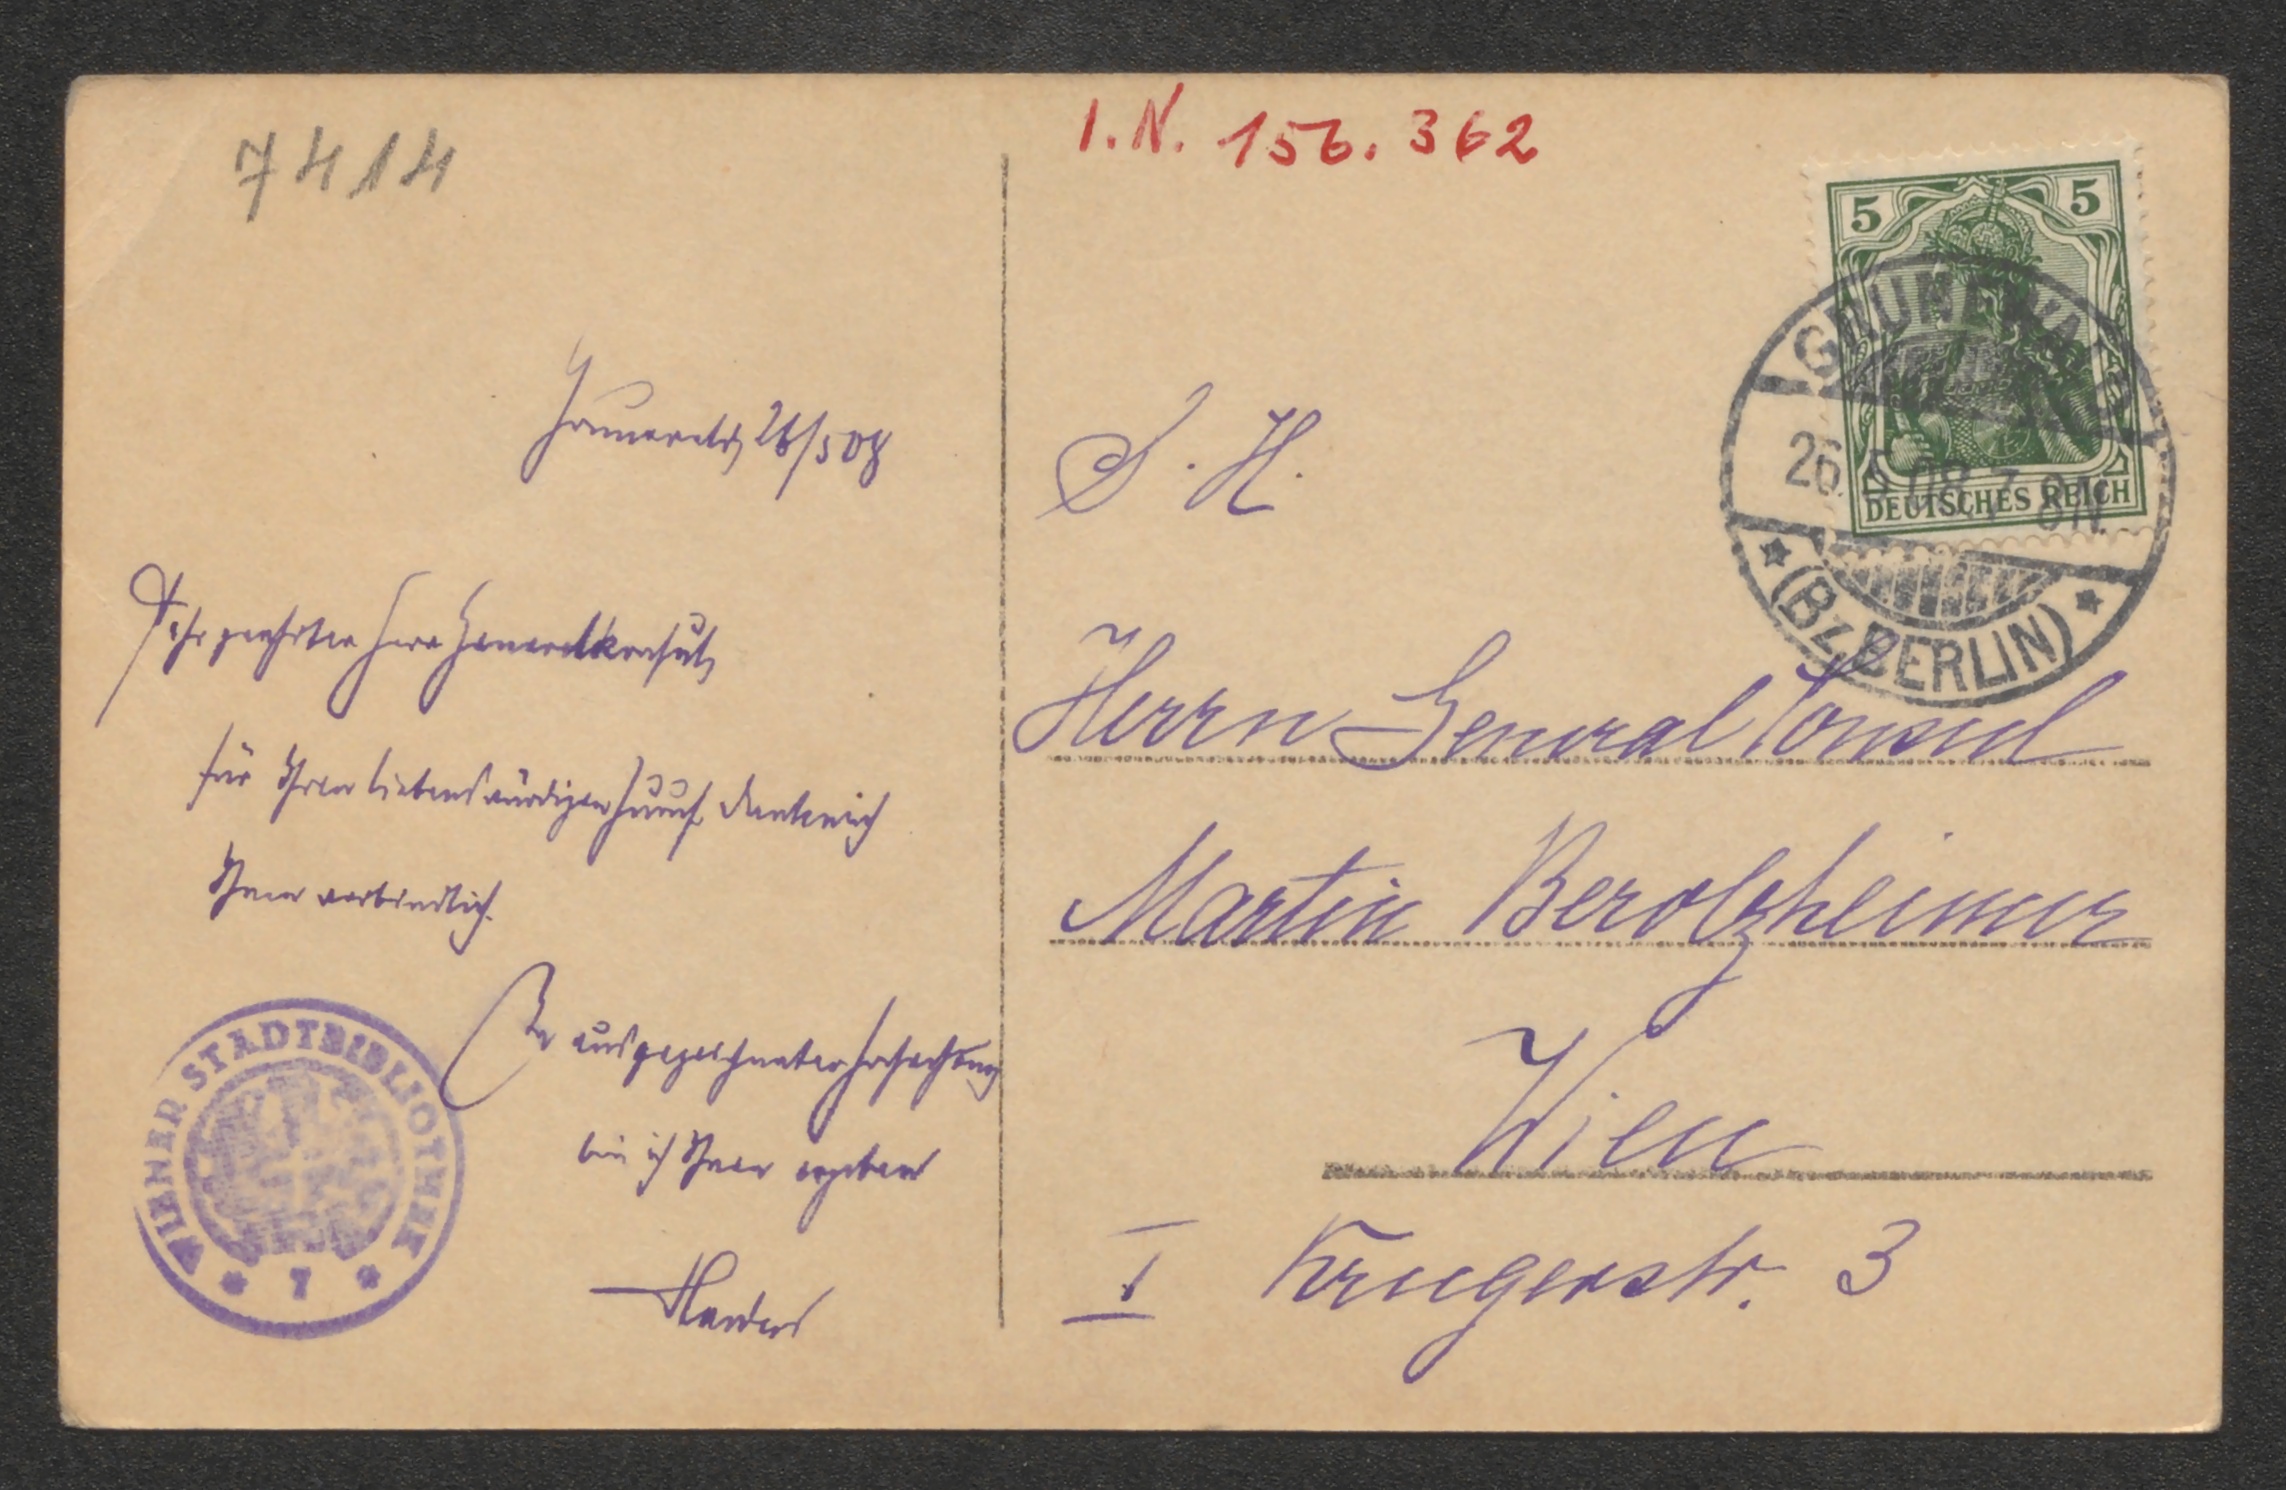 7414
I.N. 156.362
5 5
DEUTSCHES REICH
GRUNEWALD
26.5.08.7-8N.
(BZ. BERLIN)
Grunewald, 26/5 08
Sehr geehrter Herr Generalkonsul,
für Ihren liebenswürdigen danke ich
Ihnen verbindlich.
In ausgezeichneter Hochachtung
bin ich Ihnen ergeben
Harden
S. H.
Herrn General Consul
Martin Berolzheimer
Wien
I Krugerstr. 3
WIENER STADTBIBLIOTHEK
* 7 *